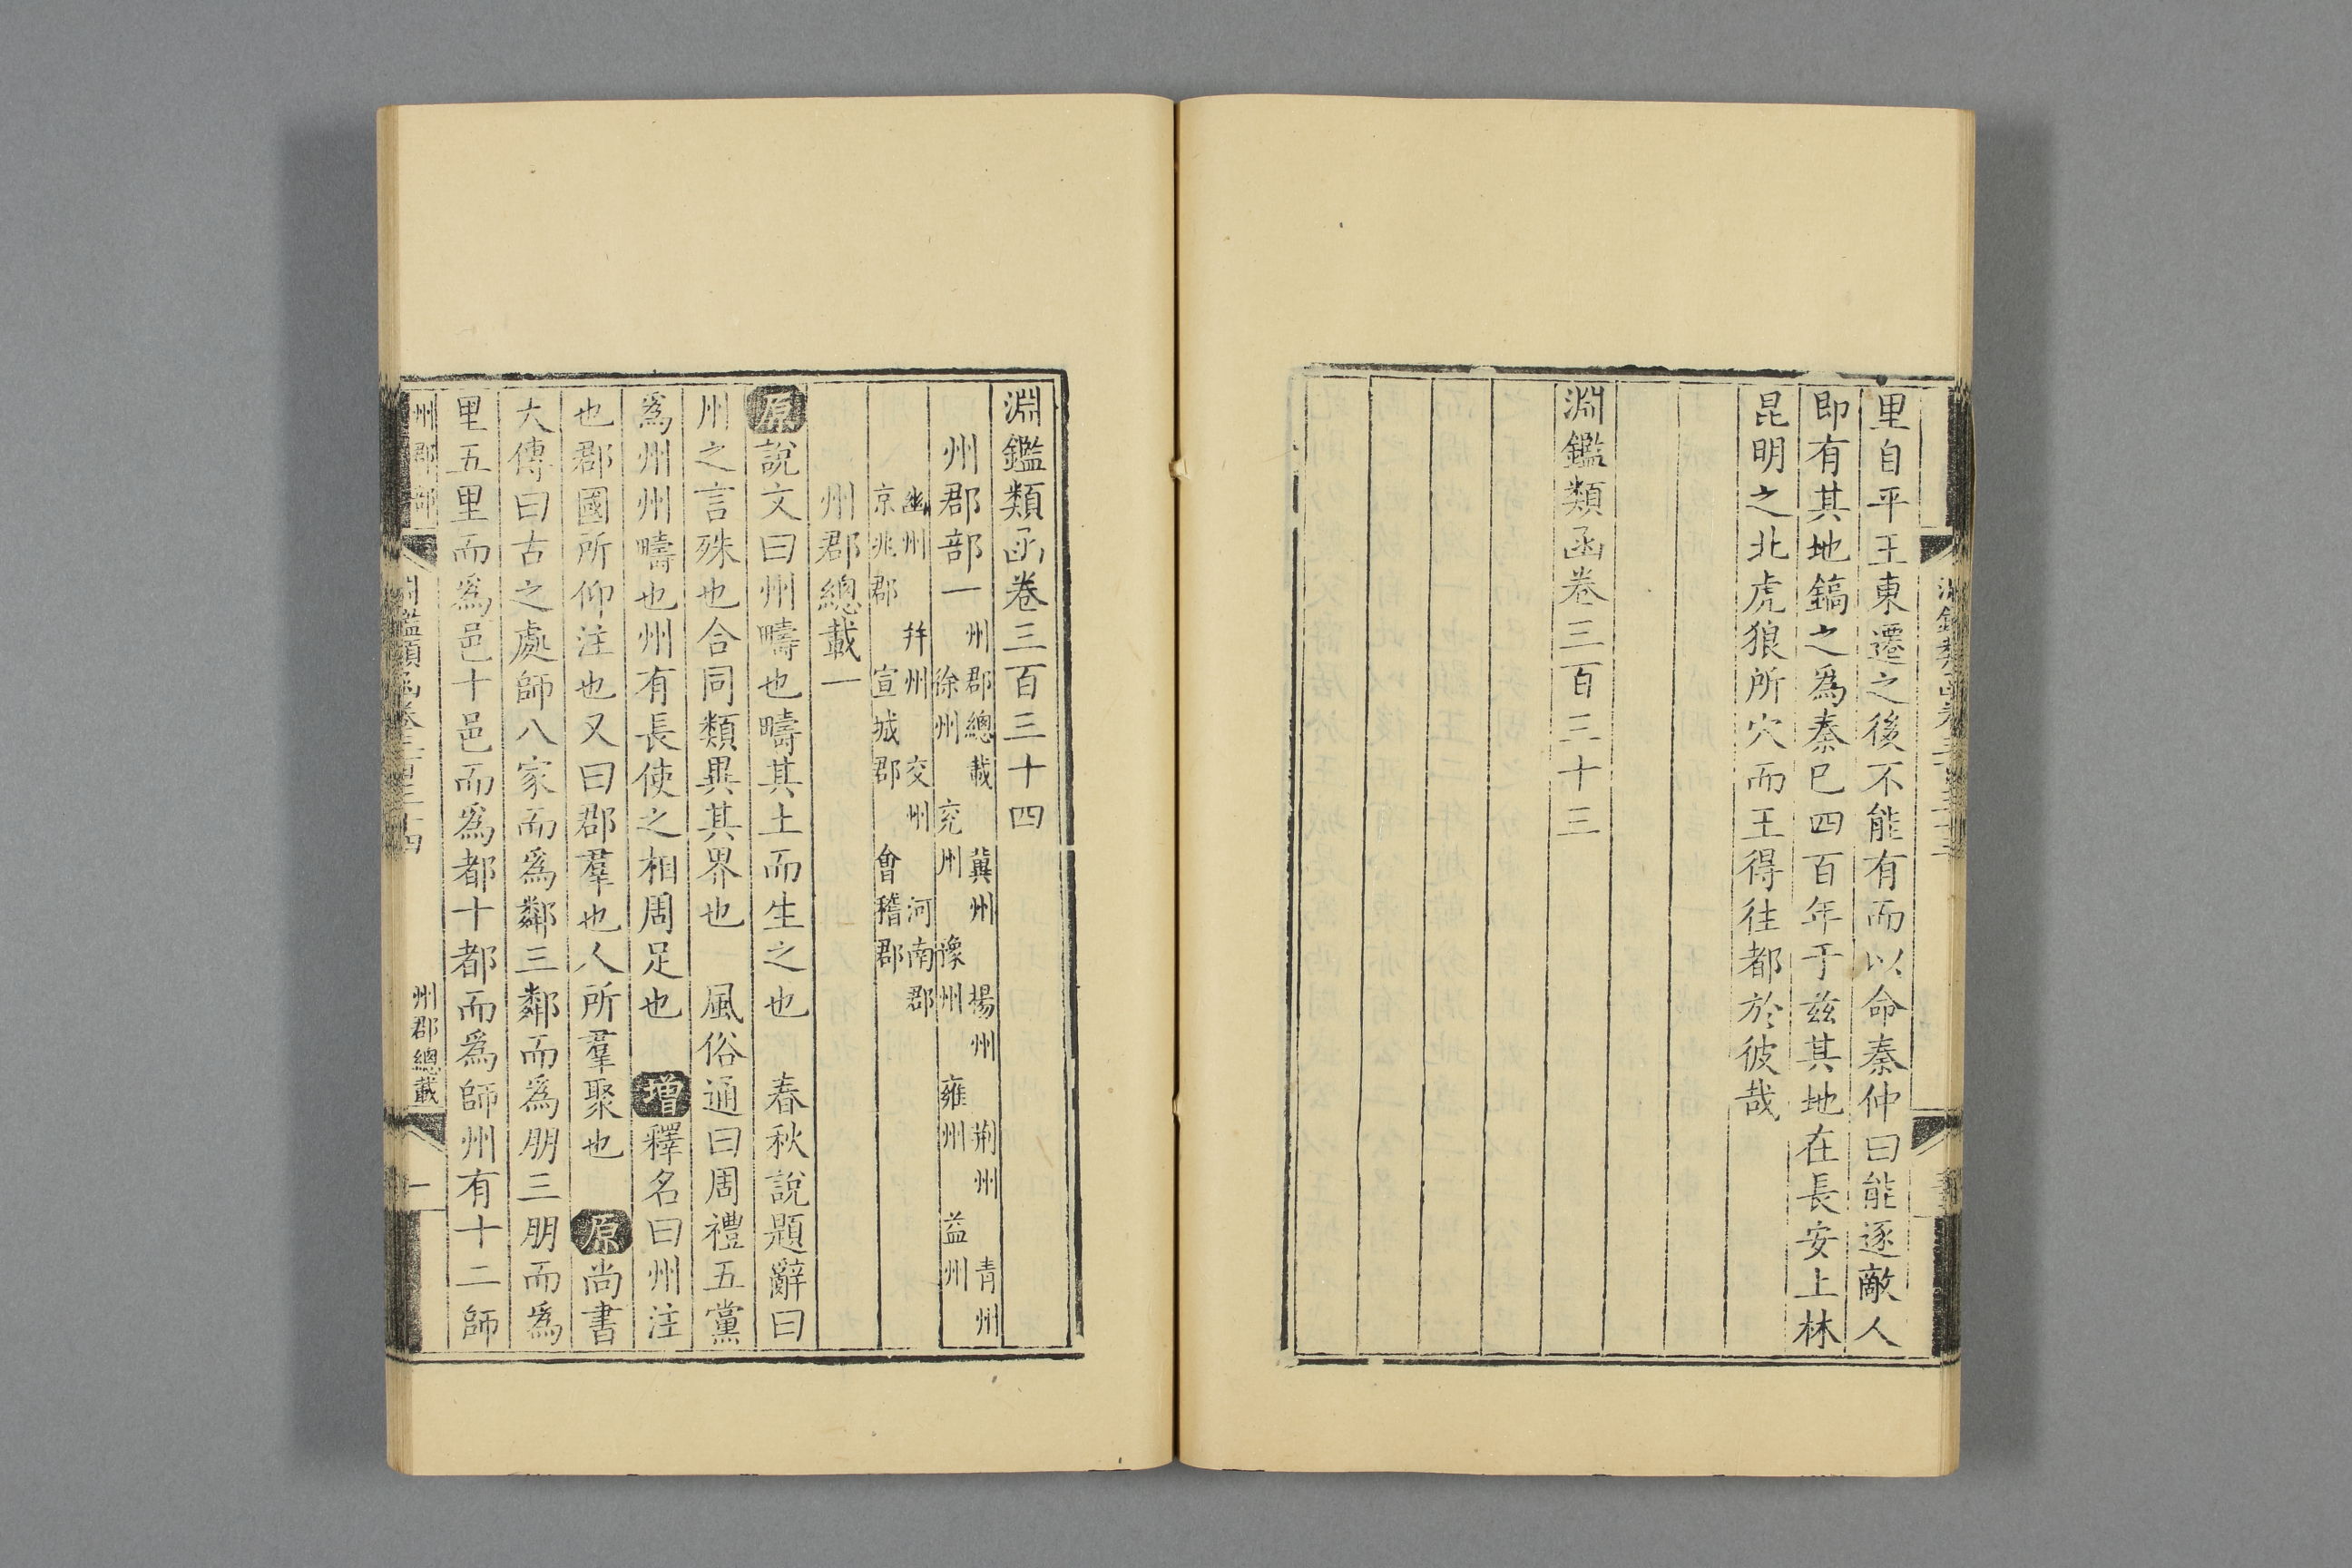 里自平王東遷之後不能有而以命秦仲曰能逐敵人
即有其地鎬之為秦已四百年于茲其地在長安上林
昆明之北虎狼所穴而王得往都於彼哉
淵鑑類函卷三百三十三
淵鑑類函卷三百三十四
州郡部一
州郡總載 冀州 揚州 荆州 青州
徐州 兖州 豫州 雍州 益州
幽州 幷州 交州 河南郡
京兆郡 宣城郡 會稽郡
州郡總載一
原說文曰州疇也疇其土而生之也 春秋說題辭曰
州之言殊也合同類異其界也 風俗通曰周禮五黨
爲州州疇也州有長使之相周足也 增釋名曰州注
也郡國所仰注也又曰郡羣也人所羣聚也 原尚書
大傳曰古之處師八家而爲鄰三鄰而爲朋三朋而爲
里五里而爲邑十邑而爲都十都而爲師州有十二師
州郡部
淵鑑類函卷三百三十四
州郡總載
一